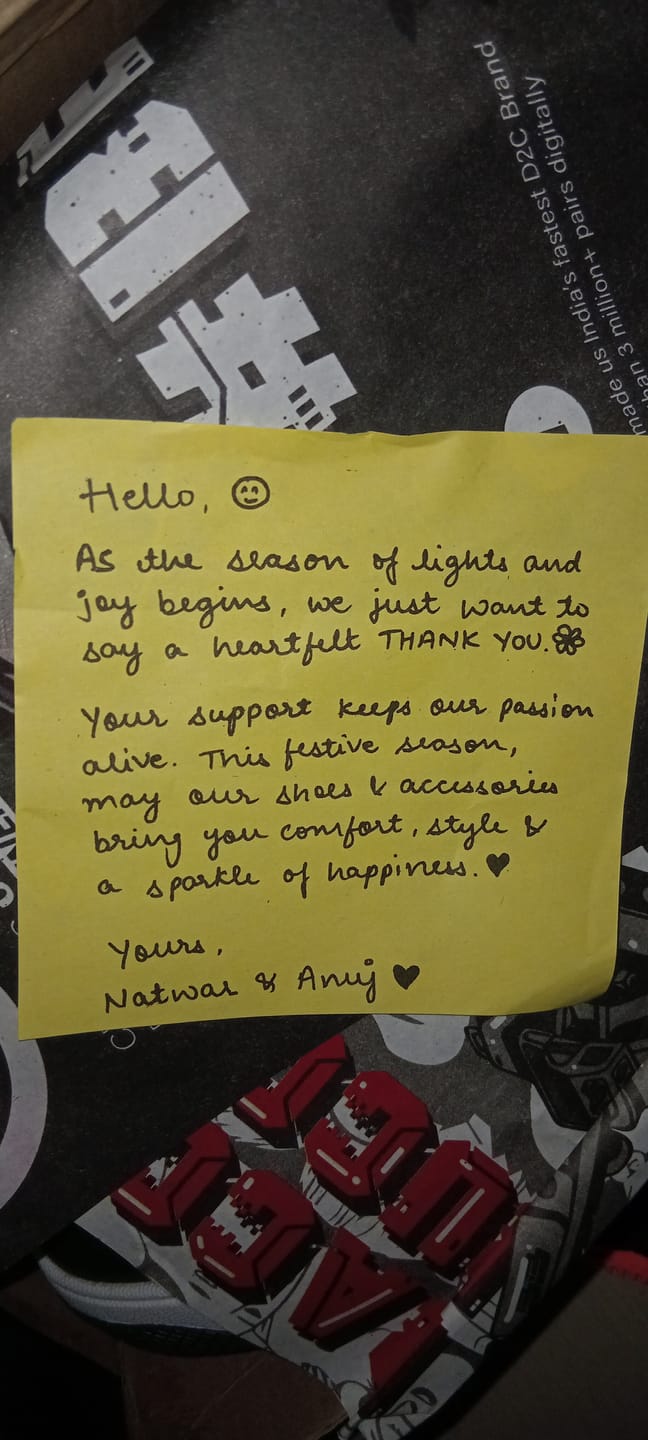 made us India's fastest D2C Brand
than 3 million+ pairs digitally
Hello,
As the season of lights and
joy begins, we just want to
say a heartfelt THANK YOU.
Your support keeps our passion
alive. This festive season,
may our shoes & accessories
bring you comfort, style &
a sparkle of happiness. ♥
Yours,
Natwar & Anuj ♥